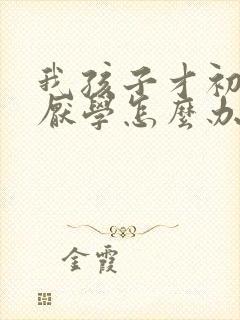 我孩子才初
厭學怎麼办
金霞